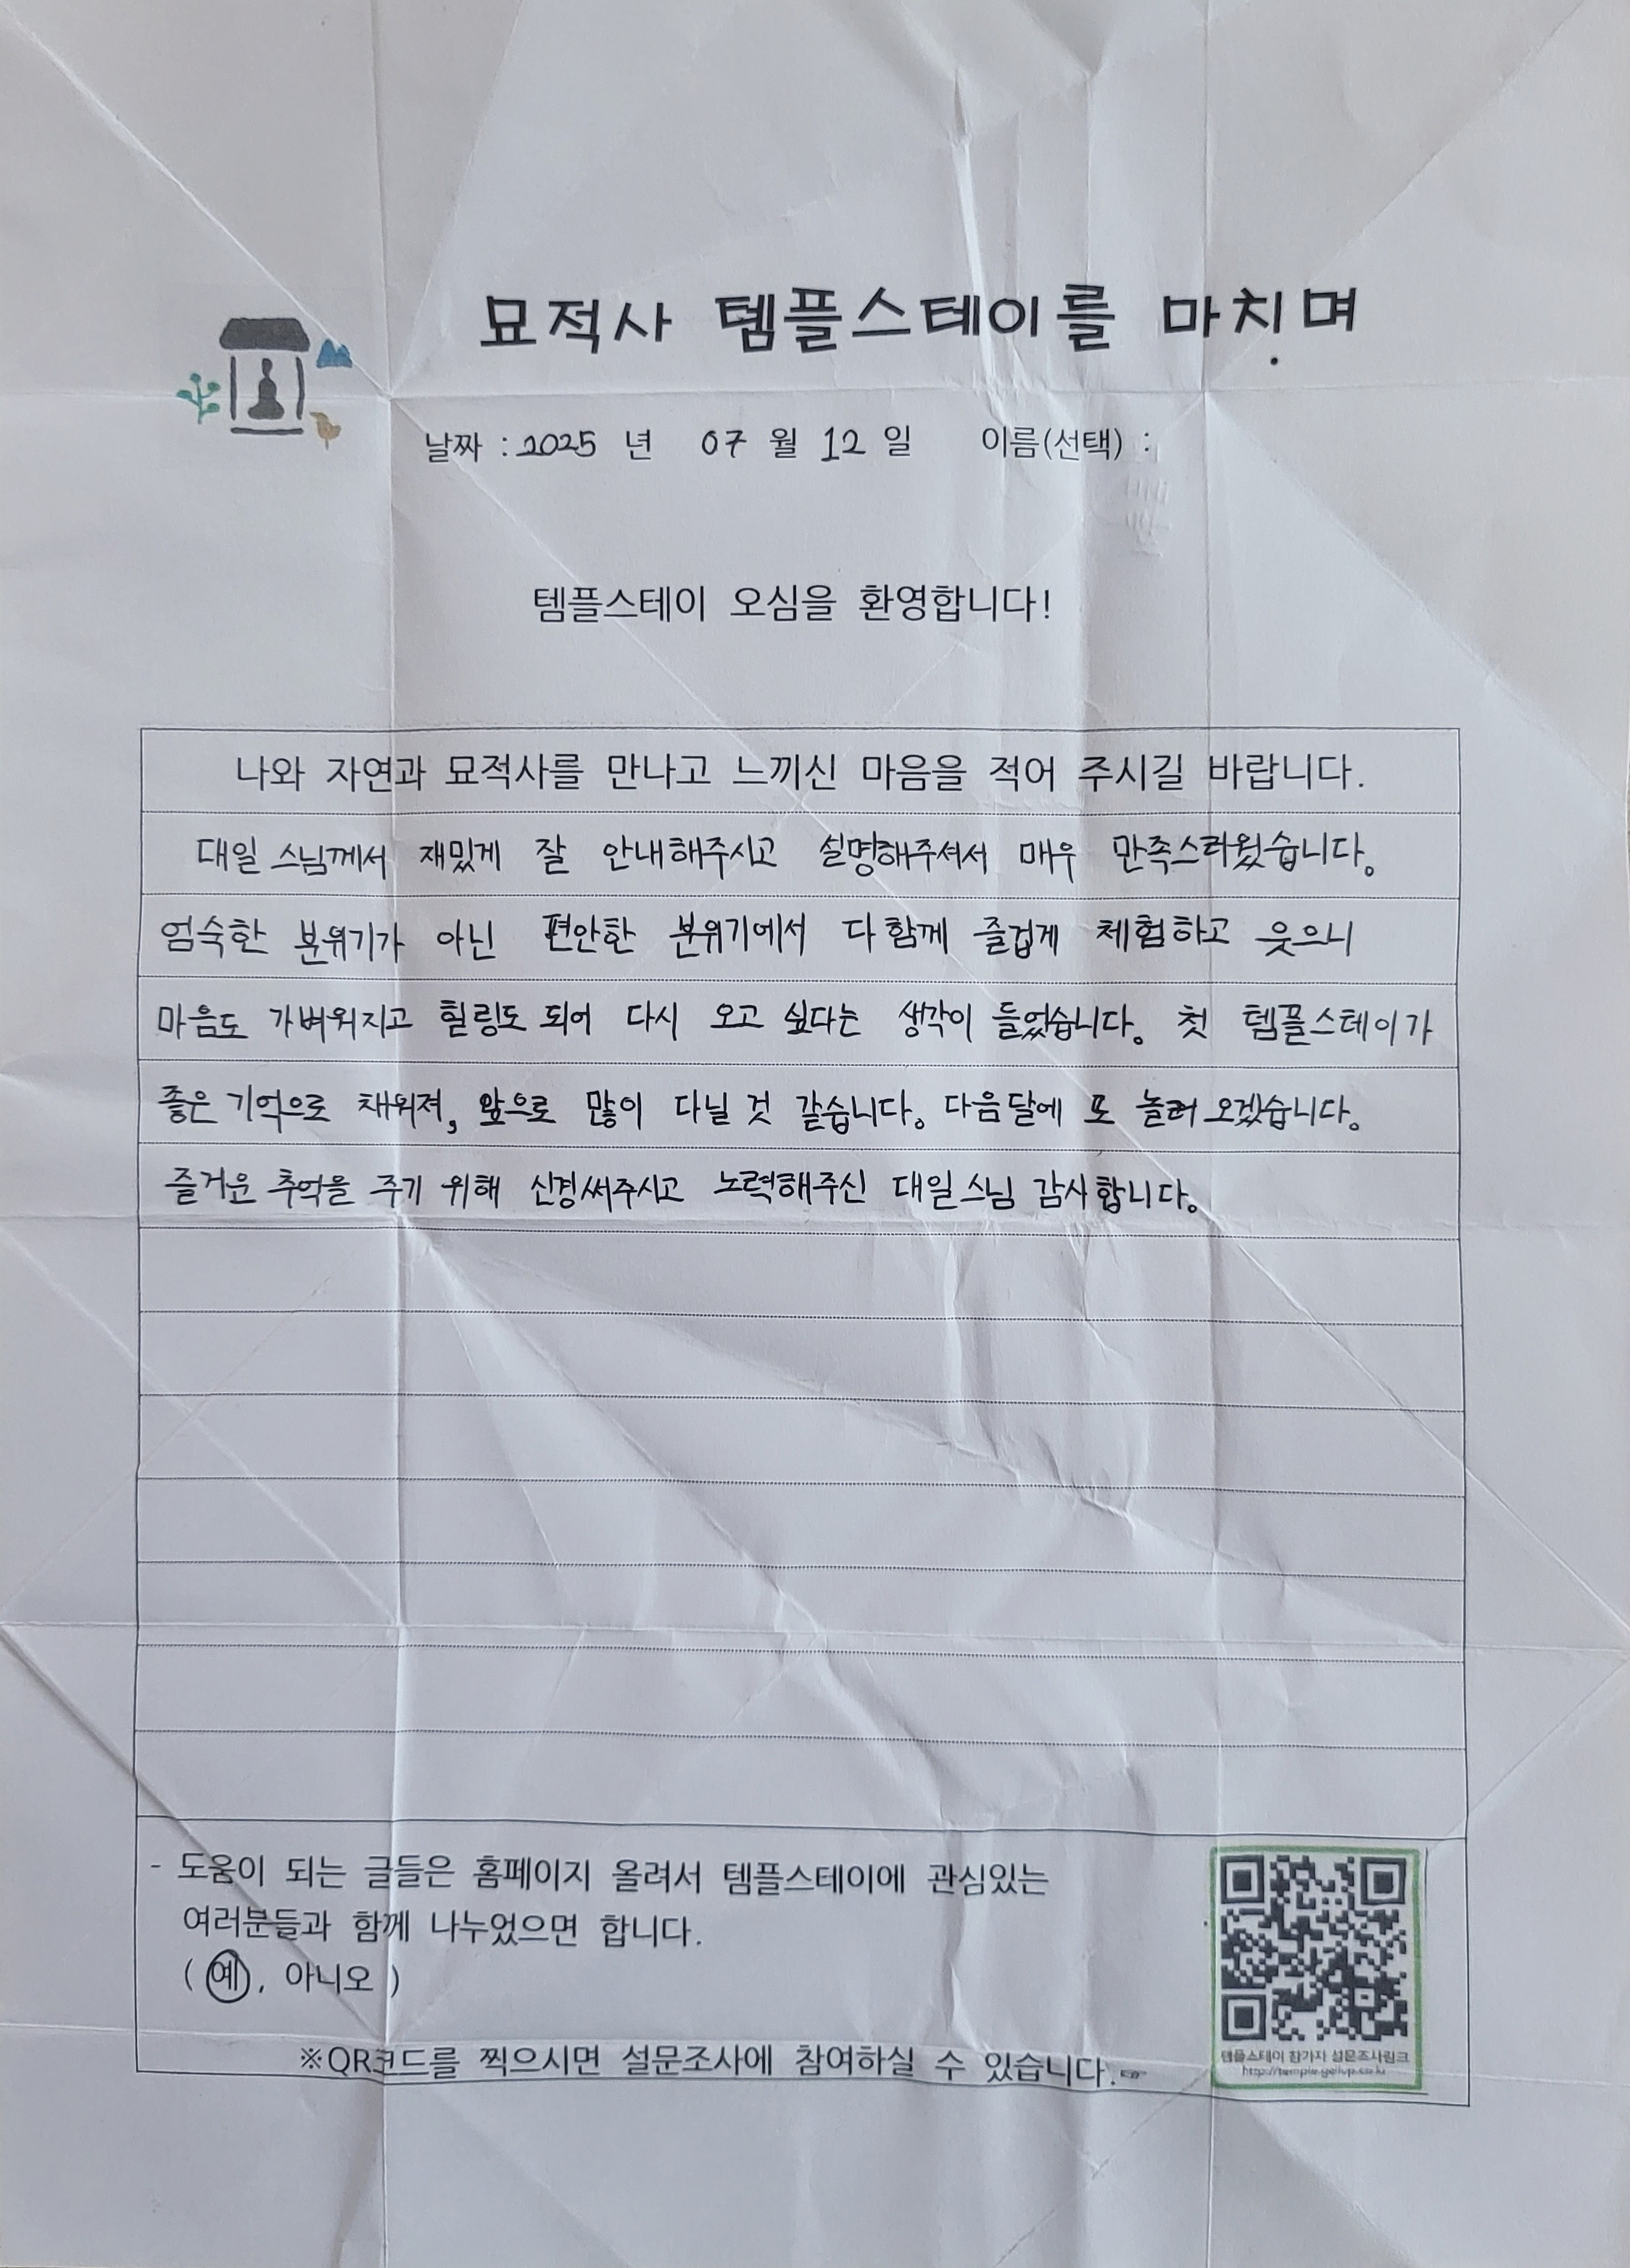 묘적사 템플스테이를 마치며
날짜 : 2025 년 07 월 12 일 이름(선택) :
템플스테이 오심을 환영합니다!
나와 자연과 묘적사를 만나고 느끼신 마음을 적어 주시길 바랍니다.
대일 스님께서 재밌게 잘 안내해주시고 설명해주셔서 매우 만족스러웠습니다.
엄숙한 분위기가 아닌 편안한 분위기에서 다 함께 즐겁게 체험하고 웃으니
마음도 가벼워지고 힐링도 되어 다시 오고 싶다는 생각이 들었습니다. 첫 템플스테이가
좋은 기억으로 채워져, 앞으로 많이 다닐 것 같습니다. 다음달에 또 놀러 오겠습니다.
즐거운 추억을 주기 위해 신경써주시고 노력해주신 대일 스님 감사합니다.
- 도움이 되는 글들은 홈페이지 올려서 템플스테이에 관심있는
여러분들과 함께 나누었으면 합니다.
( 예, 아니오 )
템플스테이 참가자 설문조사링크
※QR코드를 찍으시면 설문조사에 참여하실 수 있습니다.☞